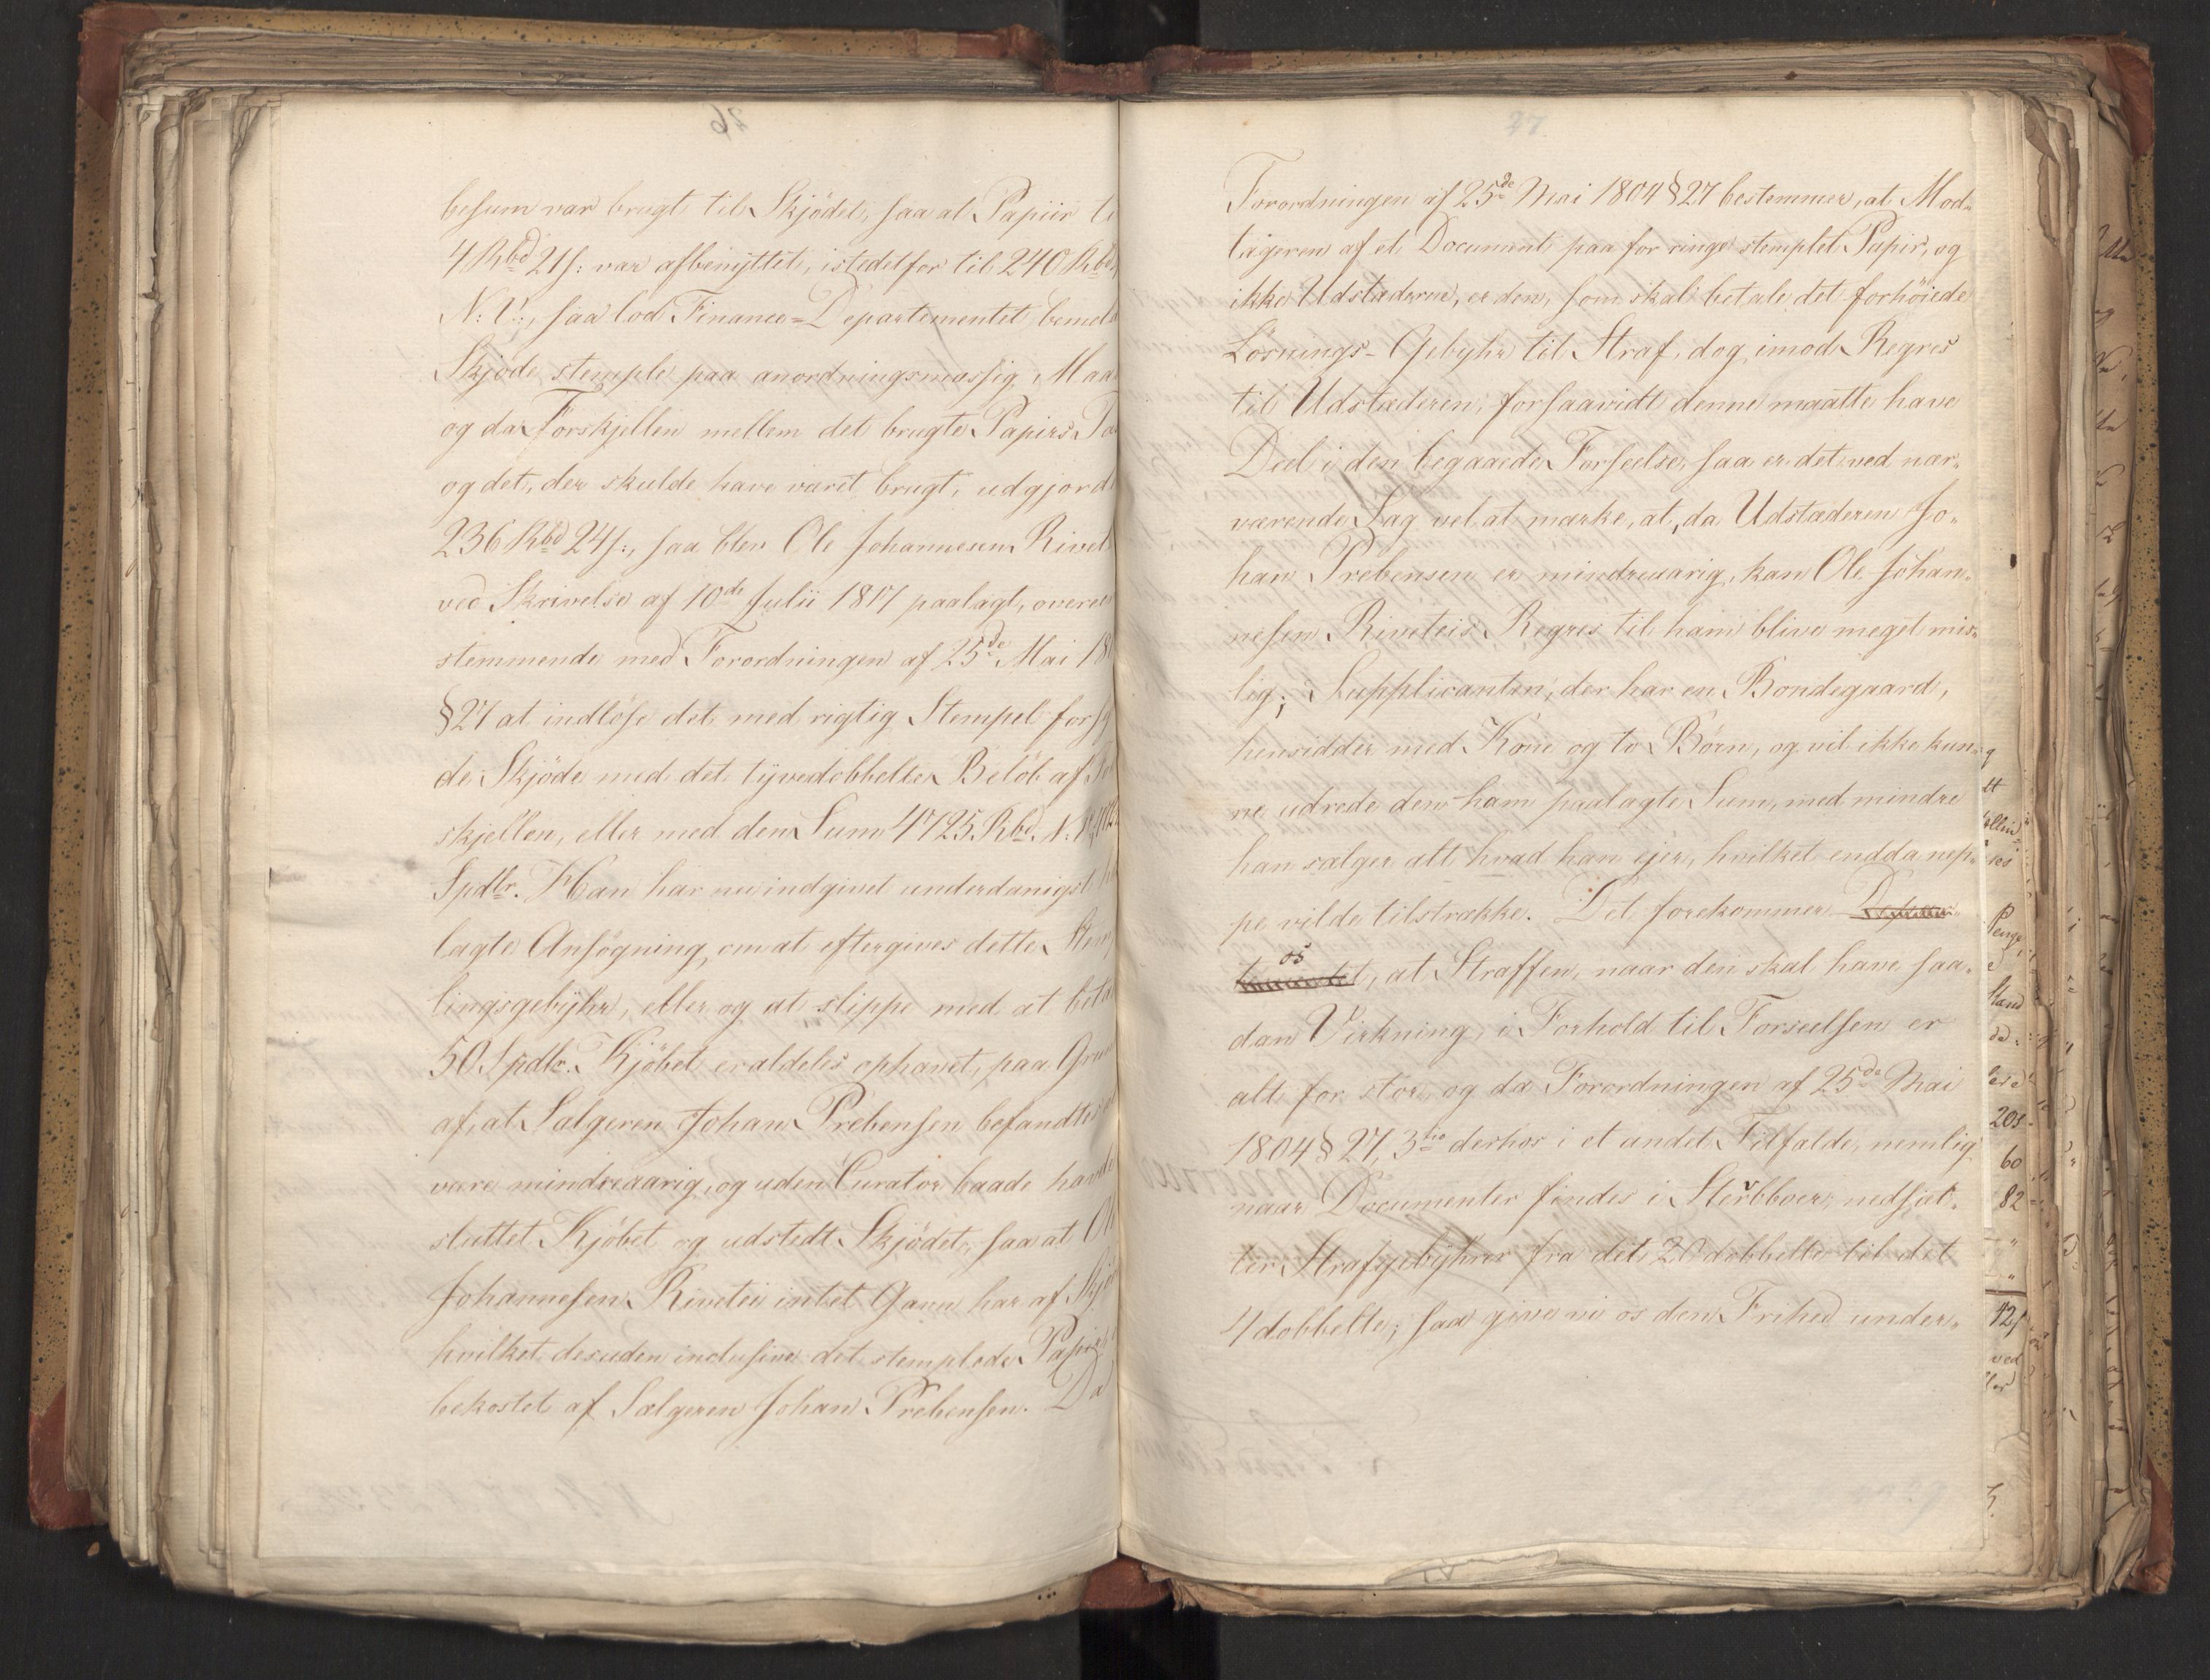 besum var brugt til Skjödet, saa at Papiir
4 Rbd 21 s: var afbenyttet, istedetfor til 240 Rbd
N: V:, saa lod Finance-Departementet bemel
Skjöde stemple paa anordningsmæssig Maa
og da Forskjellen mellem det brugte Papirs
og det, der skulde have været brugt, udgjorde
236 Rbd 24 s:, saa blev Ole Johannesen Rivet
ved Skrivelse af 10de Julii 1817 paalagt, overeens
stemmende med Forordningen af 25de Mai 18
§ 27 at indlöse det med rigtig Stempel forsy
de Skjöde med det tyvedobbelte Belöb af For
skjellen, eller med den Sum 4725 Rbd. N:
Spdlr. Han har nu indgivet underdanigst
lagte Ansögning, om at eftergives dette Stemp
lingsgebyhr, eller og at slippe med at beta
50 Spdlr. Kjöbet er aldeles ophævet, paa Grun
af, at Sælgeren Johan Prebensen befandtes
være mindreaarig, og uden Curator baade havde
sluttet Kjöbet og udstedt Skjödet, saa at Ole
Johannesen Riveteie intet Gavn har af Skjö
hvilket desuden inclusive det stemplede Papir
bekostet af Sælgeren Johan Prebensen. Da
27
Forordningen af 25de Mai 1804 § 27 bestemmer, at Mod-
tageren af et Document paa for ringe stemplet Papir, og
ikke Udstæderne, er den, som skal betale det forhöiede
Lösnings-Gebyhr til Straf, dog imod Regres
til Udstæderen, forsaavidt denne maatte have
Deel i den begaaede Forseelse, saa er det ved nær-
værende Sag vel at mærke, at, da Udstæderen Jo-
han Prebensen er mindreaarig, kan Ole Johan-
nesen Riveteis Regres til ham blive meget mis-
lig; Supplicanten, der har en Bondegaard,
hensidder med Kone og to Børn, og vil ikke kun-
ne udrede den ham paalagte Sum, med mindre
han sælger alt hvad han ejer, hvilket endda nep-
pe vilde tilstrække. Det forekommer Departe-
mentet os, at Straffen, naar den skal have saa-
dan Virkning, i Forhold til Forseelsen er
alt for stor, og da Forordningen af 25de Mai
1804 § 27, 3tio derhos i et andet Tilfælde, nemlig
naar Documenter findes i Sterbboer, nedsæt-
ter Strafgebyhret fra det 20 dobbelte til det
4 dobbelte; saa give vi os den Frihed under-